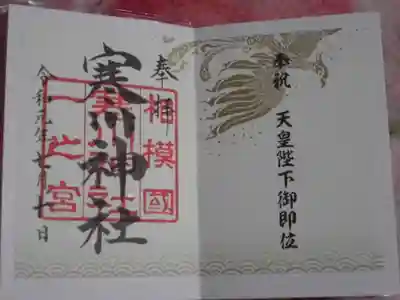 奉祝 天皇陛下御即位
奉拝
相模國
寒川神社
一之宮
令和元年